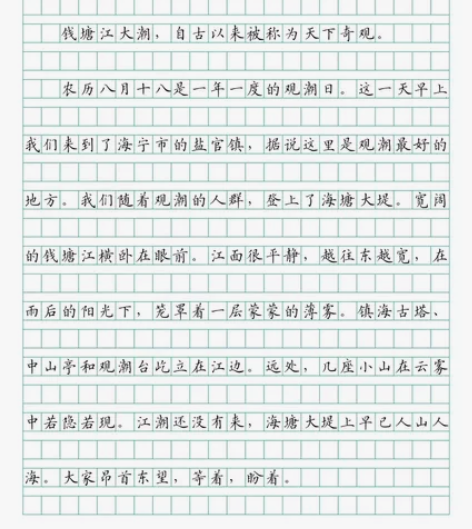 钱塘江大潮，自古以来被称为天下奇观。
农历八月十八是一年一度的观潮日。这一天早上
我们来到了海宁市的盐官镇，据说这里是观潮最好的
地方。我们随着观潮的人群，登上了海塘大堤。宽阔
的钱塘江横卧在眼前。江面很平静，越往东越宽，在
雨后的阳光下，笼罩着一层蒙蒙的薄雾。镇海古塔、
中山亭和观潮台屹立在江边。远处，几座小山在云雾
中若隐若现。江潮还没有来，海塘大堤上早已人山人
海。大家昂首东望，等着，盼着。